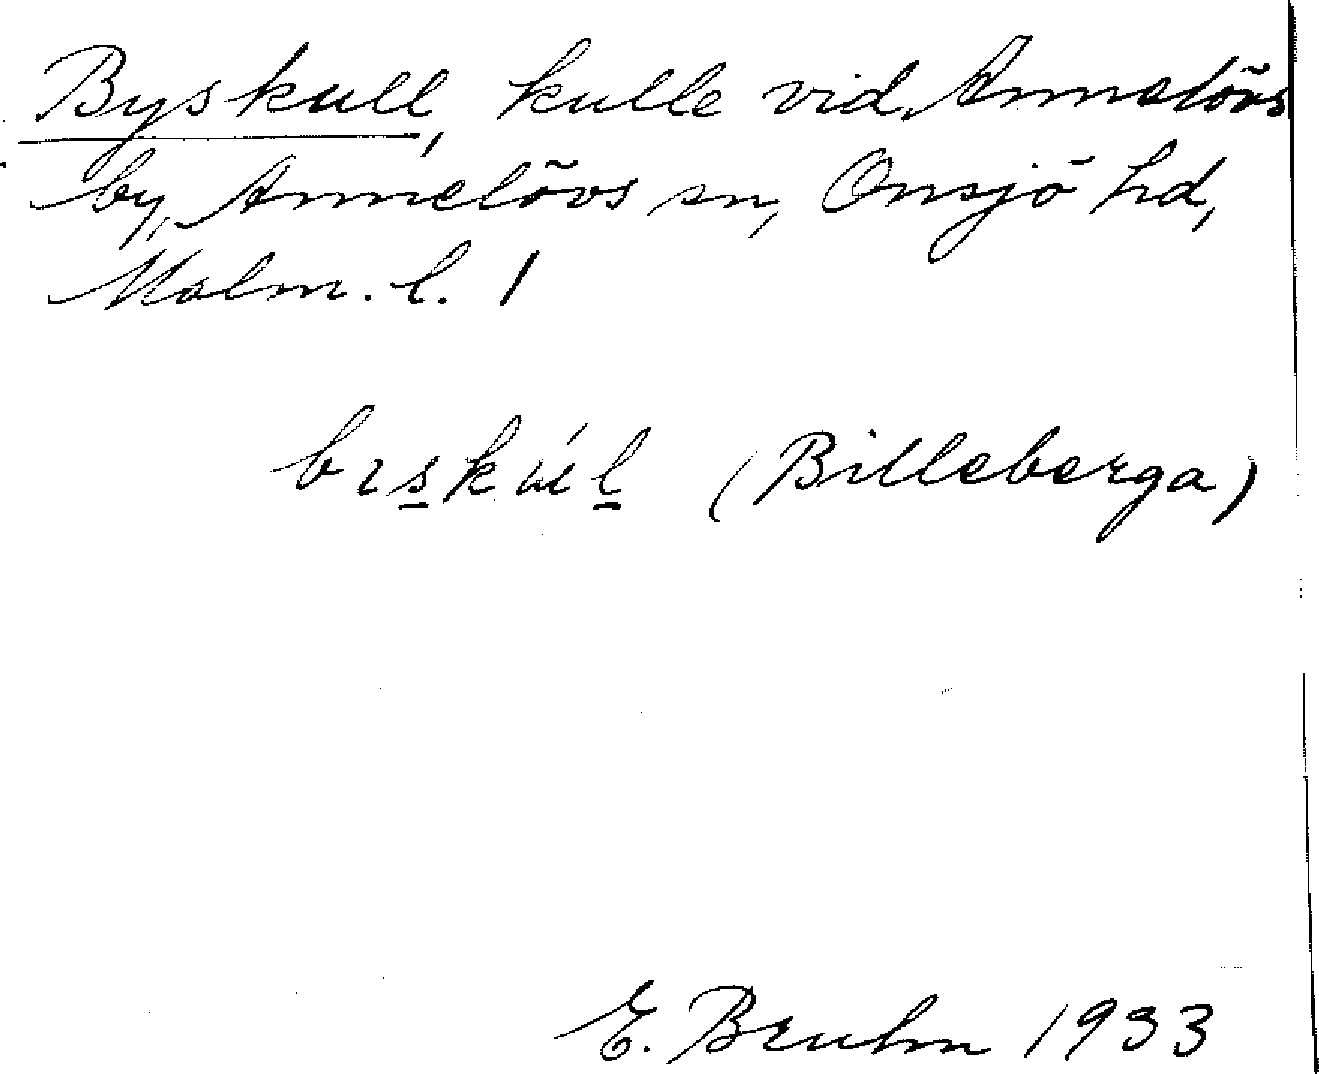 Byskull, kulle vid Annelövs
by, Annelövs sn, Onsjö hd,
Malm. l. 1
bıskúl (Billeberga)
E. Bruhn 1933